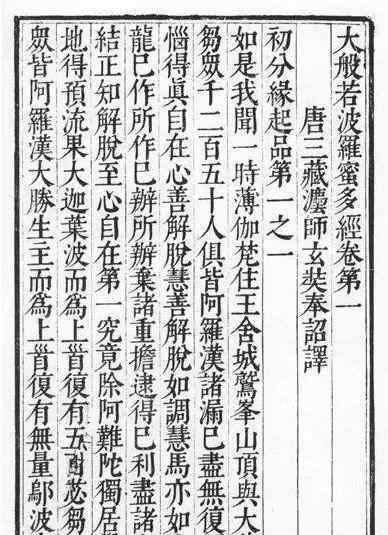 大般若波羅蜜多經卷第一
唐三藏灋師玄奘奉詔譯
初分緣起品第一之一
如是我聞一時薄伽梵住王舍城鷲峯山頂與大
芻衆千二百五十人俱皆阿羅漢諸漏巳盡無復
惱得眞自在心善解脫慧善解脫如調慧馬亦如
龍巳作所作巳辦所辦棄諸重擔逮得巳利盡諸
結正知解脫至心自在第一究竟除阿難陀獨居
地得預流果大迦葉波而爲上首復有五苾芻
衆皆阿羅漢大勝生主而爲上首復有無量鄔波